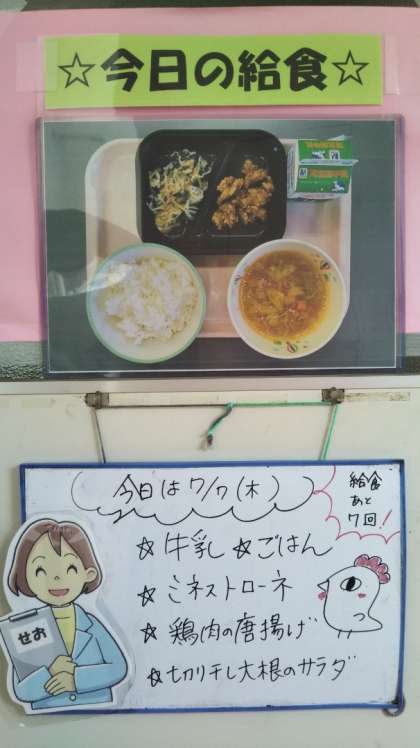 ☆今日の給食☆
今日は7/7(木)
給食
あと
7回!
☆牛乳 ☆ごはん
☆ミネストローネ
☆鶏肉の唐揚げ
☆切り干し大根のサラダ
せお